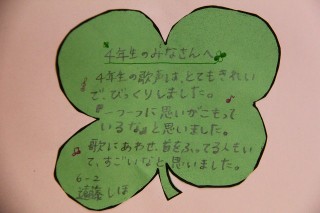 4年生のみなさんへ
4年生の歌声は、とてもきれい
で、びっくりしました。
一つ一つに思いがこもって
いるなぁと思いました。
歌にあわせ、首をふってる人もい
て、すごいなと思いました。
6-2
遠藤しほ